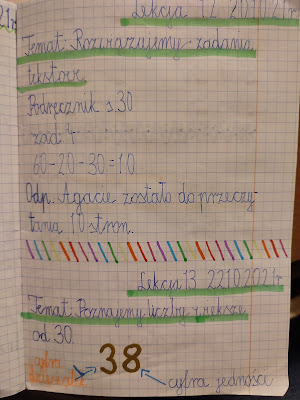 21r.
Lekcja 12 21.10.21r.
Temat: Rozwiązujemy zadania
tekstowe.
Podręcznik s.30
zad. 4
60-20-30=10
Odp. Agacie zostało do przeczy-
tania 10 stron.
Lekcja 13 22.10.2021r.
Temat: Poznajemy liczby większe
od 30.
cyfra
dziesiątek
38
cyfra jedności